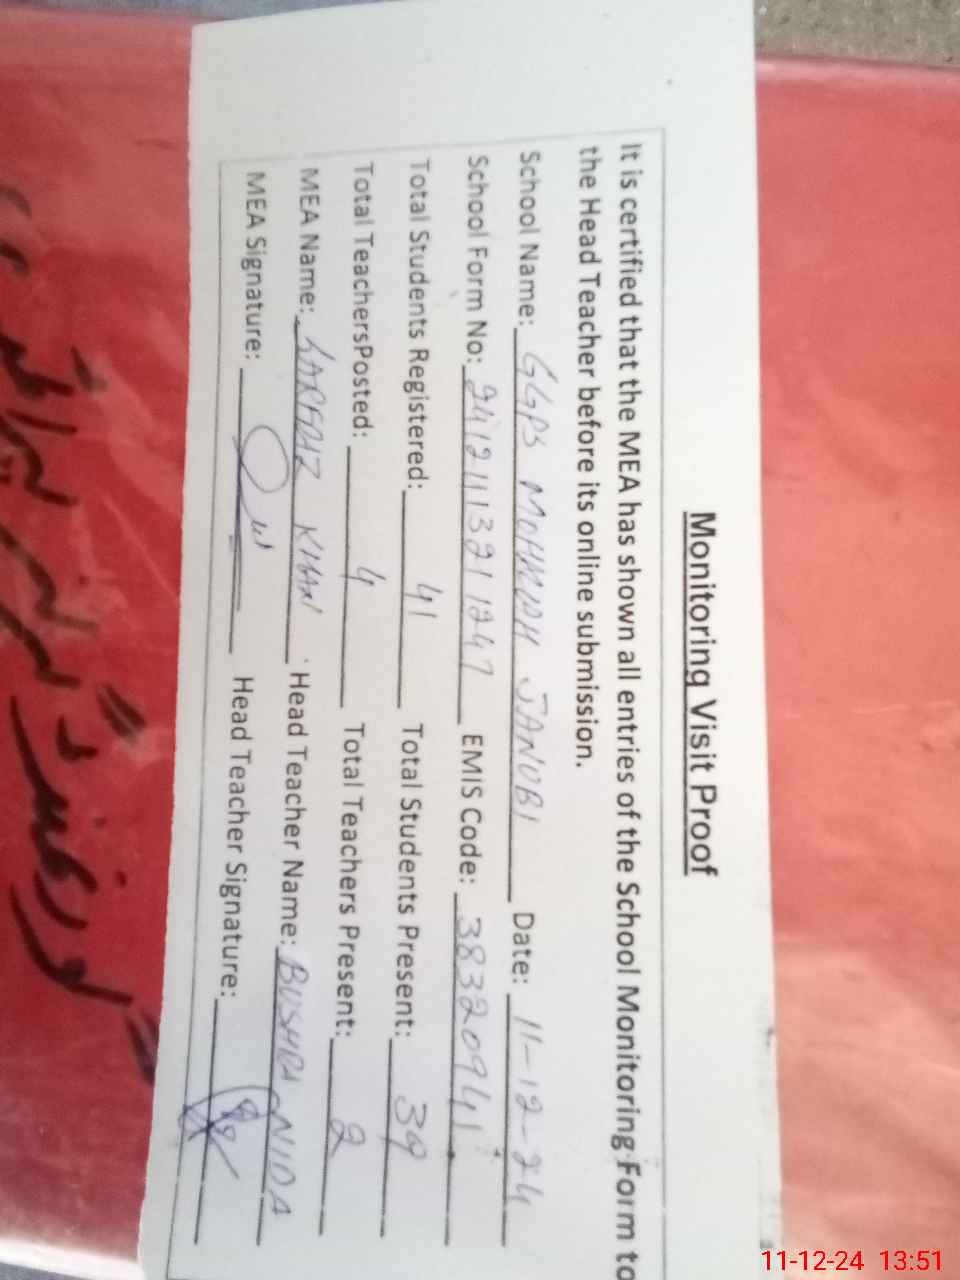 Monitoring Visit Proof
It is certified that the MEA has shown all entries of the School Monitoring Form to
the Head Teacher before its online submission.
School Name: GGPS MOHMDH JANUBI Date: 11-12-24
School Form No: 2412113211247 EMIS Code: 38320941
Total Students Registered: 41 Total Students Present: 39
Total TeachersPosted: 4 Total Teachers Present: 2
MEA Name: SARFRAZ KHAN Head Teacher Name: BUSHRA NIDA
MEA Signature: Head Teacher Signature:
11-12-24 13:51